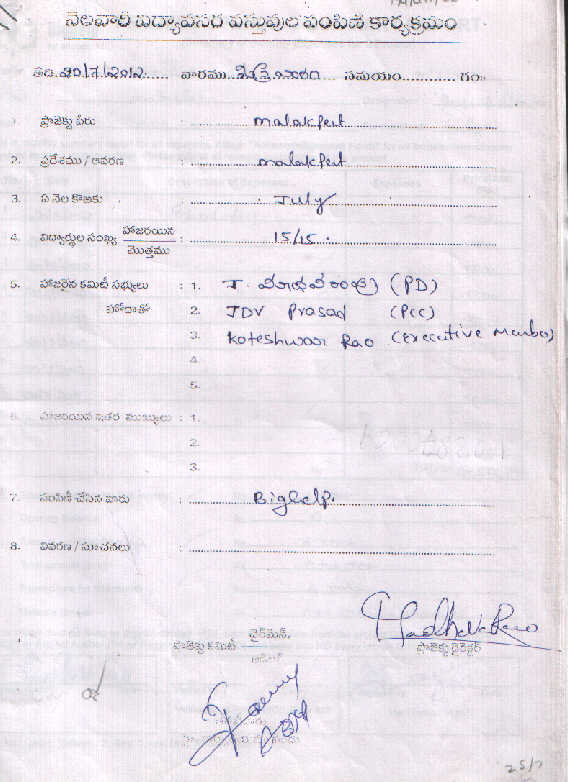 నెలవారీ విద్యావసర వస్తువుల పంపిణీ కార్యక్రమం
తేది 20/7/2012 వారము సమయం గం
1. ప్రాజెక్టు పేరు : malakpet
2. ప్రదేశము / ఆవరణ : malakpet
3. ఏ నెల కొఱకు : July
4. విద్యార్థుల సంఖ్య హాజరయిన : 15/15.
మొత్తము
5. హాజరైన కమిటీ సభ్యులు : 1. (PD)
హోదాతో 2. JDV Prasad (PCC)
3. Koteshwar Rao (Executive Member)
4.
5.
6. హాజరయిన ఇతర ముఖ్యులు : 1.
2.
3.
7. పంపిణీ చేసిన వారు : Bighelp.
8. వివరణ / సూచనలు :
Madhava Rao
ఛైర్మెన్,
ప్రాజెక్టు కమిటీ ప్రాజెక్టు డైరెక్టర్
25/7